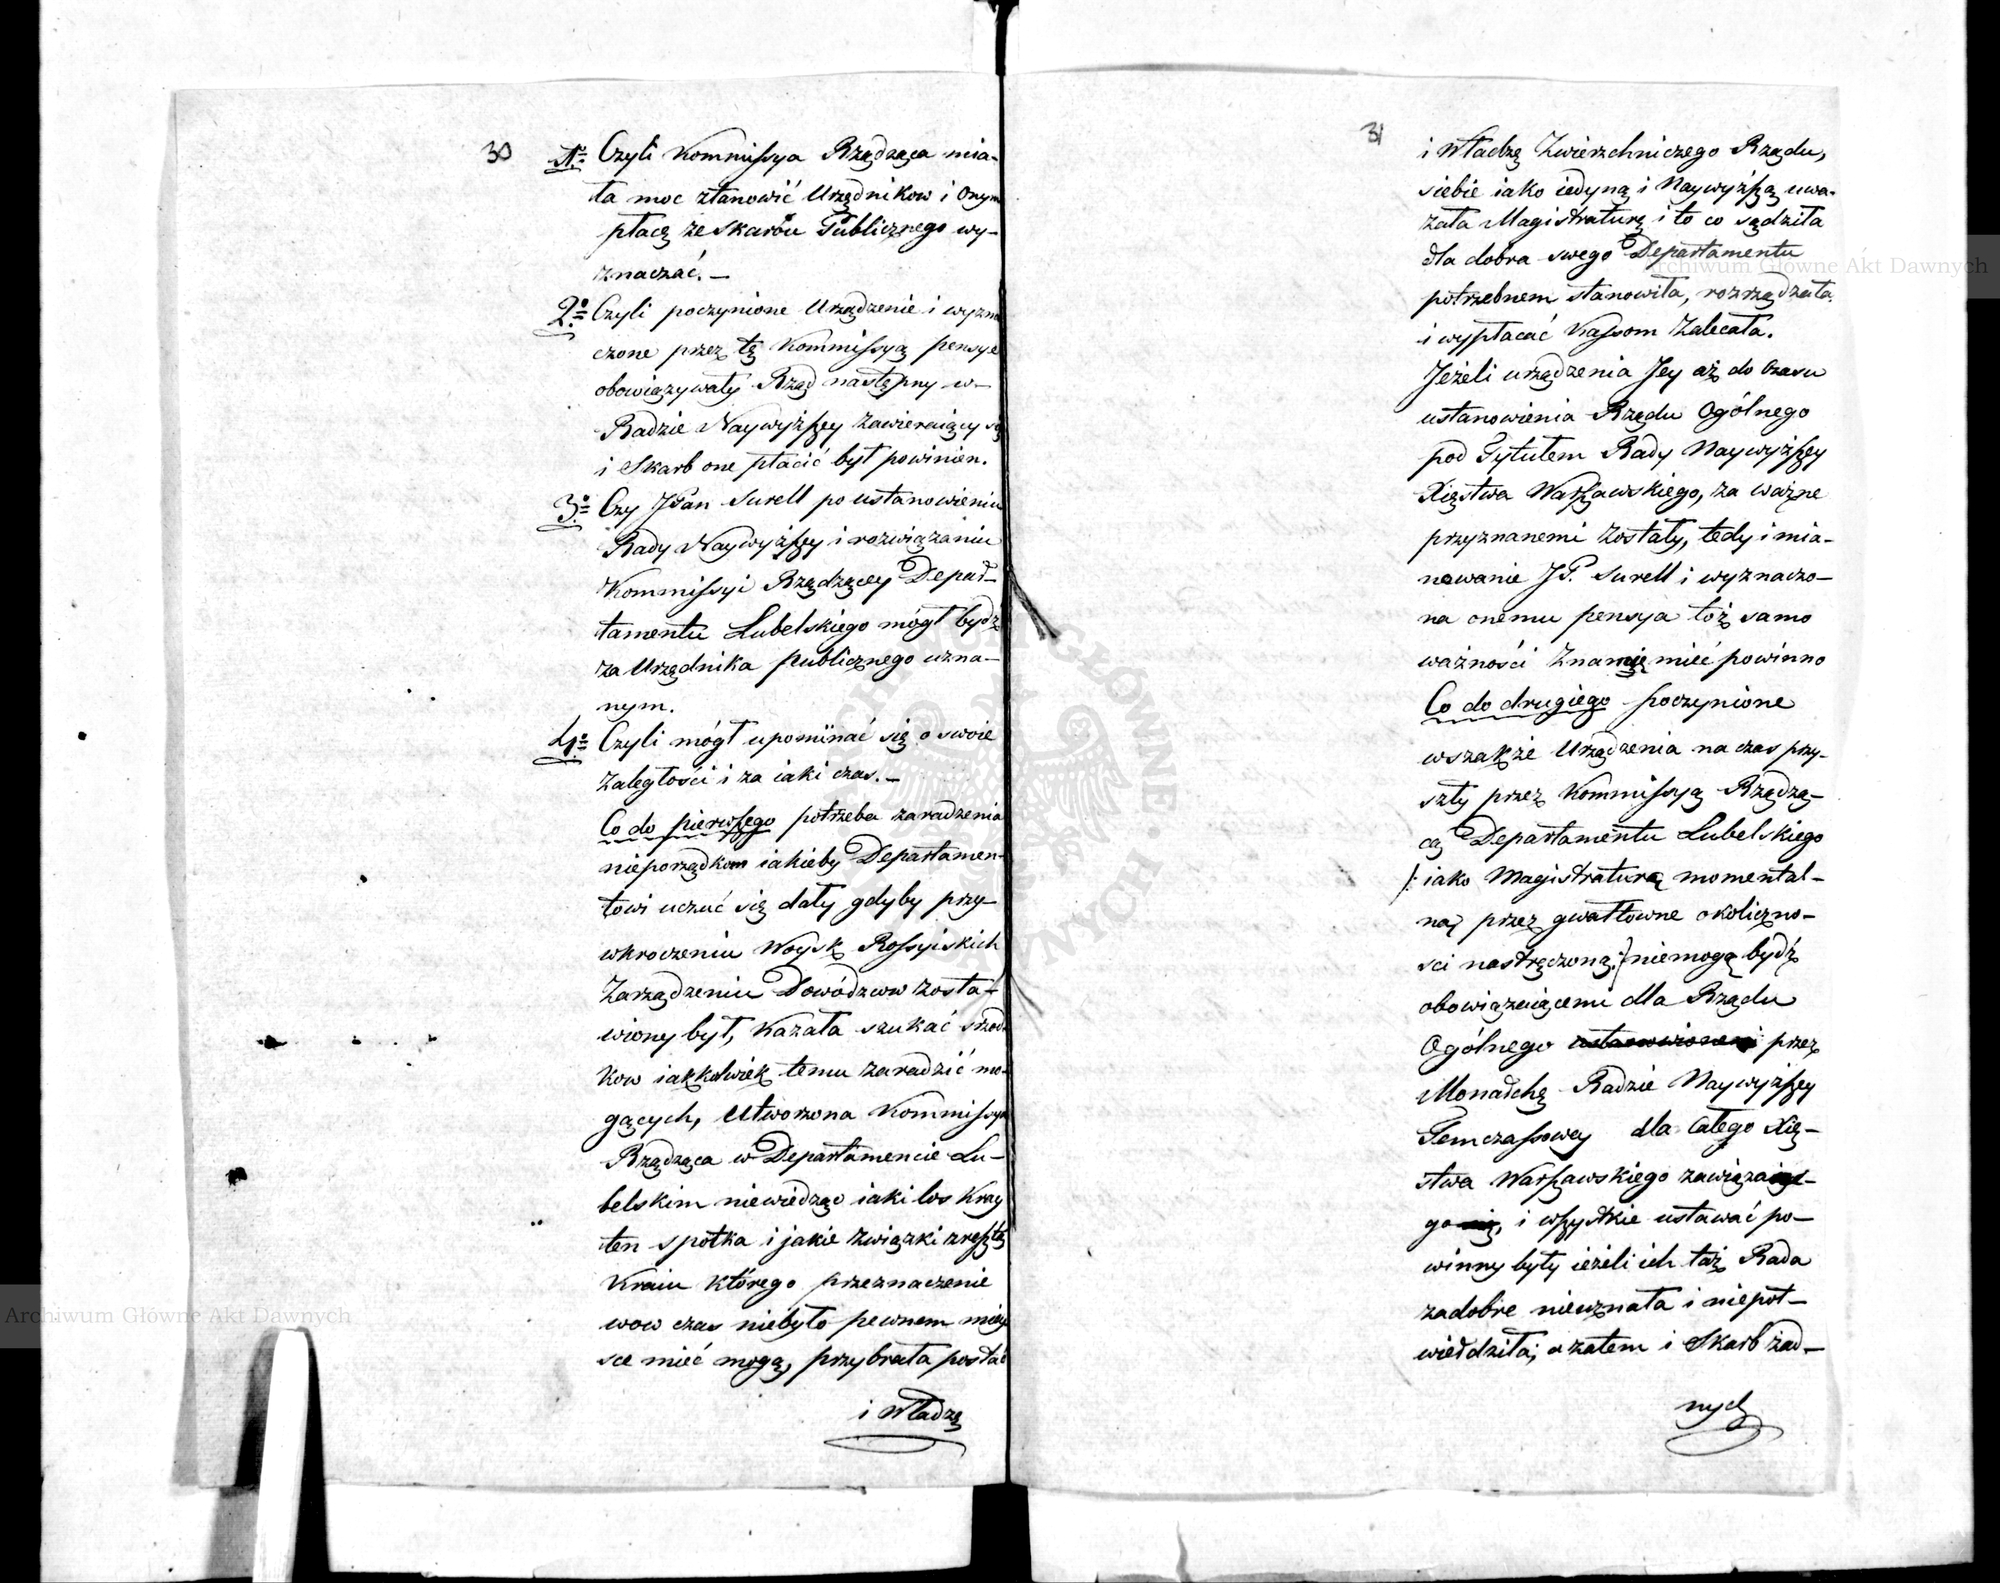 30
1º Czyli Kommissya Rządząca mia-
ła moc stanowić Urzędnikow i onym
płacę ze Skarbu Publicznego wy-
znaczać. –
2º Czyli poczynione Urządzenie i wyzna
czone przez tę Kommissyą pensye
obowiązywały Rząd następny w-
Radzie Naywyższey zawieraiący się
i Skarb one płacić był powinien.
3º Czy JPan Surell po ustanowieniu
Rady Naywyższey i rozwiązaniu
Kommissyi Rządzącey Depar-
tamentu Lubelskiego mógł bydź
za Urzędnika publicznego uzna-
nym.
4º Czyli mógł upominać się o swoie
zaległości i za iaki czas. –
Co do pierwszego potrzeba zaradzenia
nieporządkom iakieby Departamen-
towi uczuć się dały gdyby przy-
wkroczeniu Woysk Rossyiskich
Zarządzeniu Dowódzcow zosta-
wiony był, kazała szukać srzod-
kow iakkolwiek temu zaradzić mo-
gących, Utworzona Kommissya
Rządząca w Departamencie Lu-
belskim niewiedząc iaki los Kray
ten spotka i jakie związki z resztą
Kraiu którego przeznaczenie
wow czas niebyło pewnem miey
sce mieć mogą, przybrała postać
i Władzę
31
i Władzę Zwierzchniczego Rządu,
siebie iako iedyną i Naywyższą uwa-
żała Magistraturę i to co sądziła
dla dobra swego Departamentu
potrzebnem stanowiła, rozrządzała
i wypłacać Kassom Zalecała.
Jeżeli urządzenia Jey aż do czasu
ustanowienia Rządu Ogólnego
pod Tytułem Rady Naywyższey
Xięstwa Warszawskiego, za ważne
przyznanemi zostały, tedy i mia-
nowanie JP. Surell i wyznaczo-
na onemu pensya toż samo
ważności znamię mieć powinno
Co do drugiego poczynione
wszakże Urządzenia na czas przy-
szły przez Kommissyą Rządzą-
cą Departamentu Lubelskiego
/: iako Magistraturą momental-
ną przez gwałtowne okoliczno-
sci nastręczoną :/ niemogą bydź
obowiązuiącemi dla Rządu
Ogólnego ustanowionem przez
Monarchę Radzie Naywyższey
Temczassowey dla całego Xię-
stwa Warszawskiego zawiązane-
go się, i wszystkie ustawać po-
winny były ieżeli ich taż Rada
zadobre nieuznała i niepot-
wierdziła; a zatem i Skarb żad-
nych
Archiwum Główne Akt Dawnych
Archiwum Główne Akt Dawnych